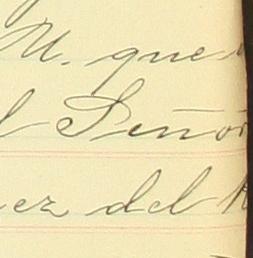 U. que
l Señor
ez del